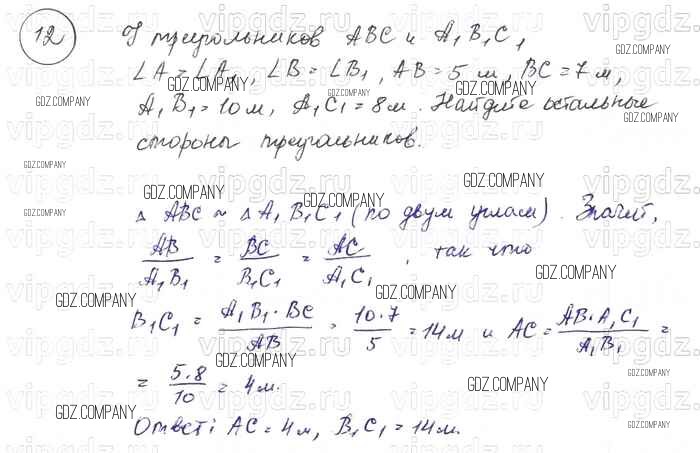 12 У треугольников ABC и A₁B₁C₁
∠A = ∠A₁, ∠B = ∠B₁, AB = 5 м, BC = 7 м,
A₁B₁ = 10 м, A₁C₁ = 8 м. Найдите остальные
стороны треугольников.
△ ABC ~ △ A₁B₁C₁ (по двум углам). Значит,
AB/A₁B₁ = BC/B₁C₁ = AC/A₁C₁, так что
B₁C₁ = A₁B₁·BC/AB = 10·7/5 = 14 м и AC = AB·A₁C₁/A₁B₁ =
= 5·8/10 = 4 м.
Ответ: AC = 4 м, B₁C₁ = 14 м.